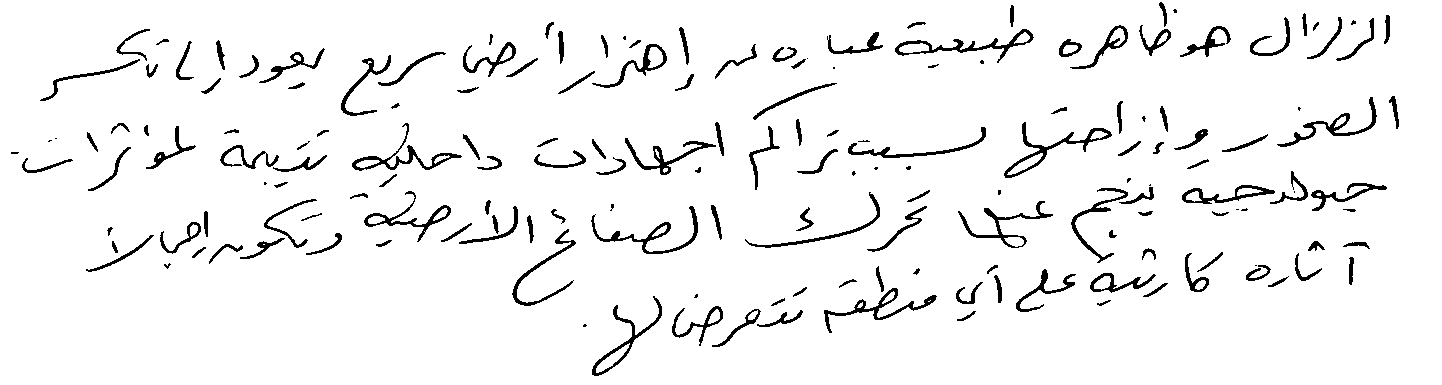 الزلزال هو ظاهره طبيعية عباره عن إهتزاز أرضي سريع يعود إلى تكسر
الصخور وإزاحتها بسبب تراكم اجهادات داخليه نتيجة لمؤثرات
جيولوجية ينجم عنها تحرك الصفائح الأرضية وتكون إجمالا
آثاره كارثية على أي منطقه تتعرض لها.